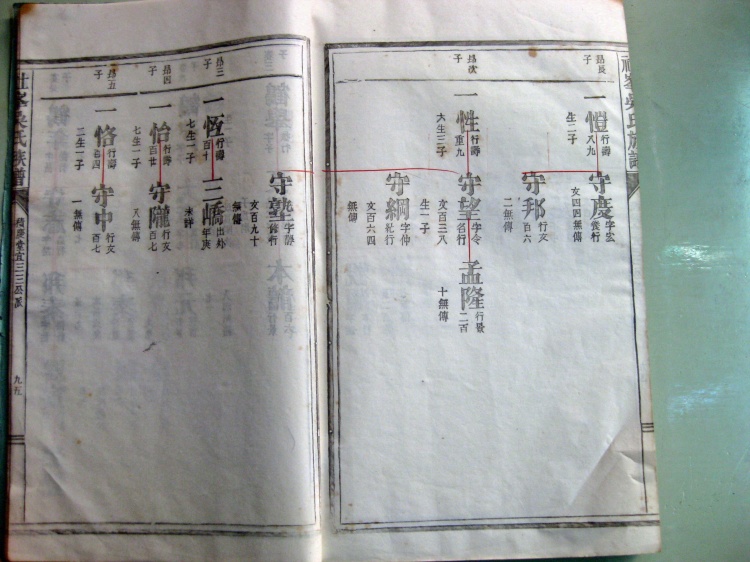 昂長子
一愷 行壽八九
生二子
守慶 字宏養行
文四四無傳
守邦 行文百六
二無傳
昂次子
一性 行壽重九
大生三子
守望 字令名行
文百三八
生一子
孟隆 行景二百
十無傳
守綱 字仲紀行
文百六四
無傳
守塾 字靜脩行
文百九十
無傳
昂三子
一恆 行壽百十
七生一子
三嶠 出外年庚
未詳
昂四子
一怡 行壽百廿
七生一子
守隴 行文百七
八無傳
昂五子
一恪 行壽卷四
二生一子
守中 行文百七
一無傳
吳氏族譜
宜三三公派
九五